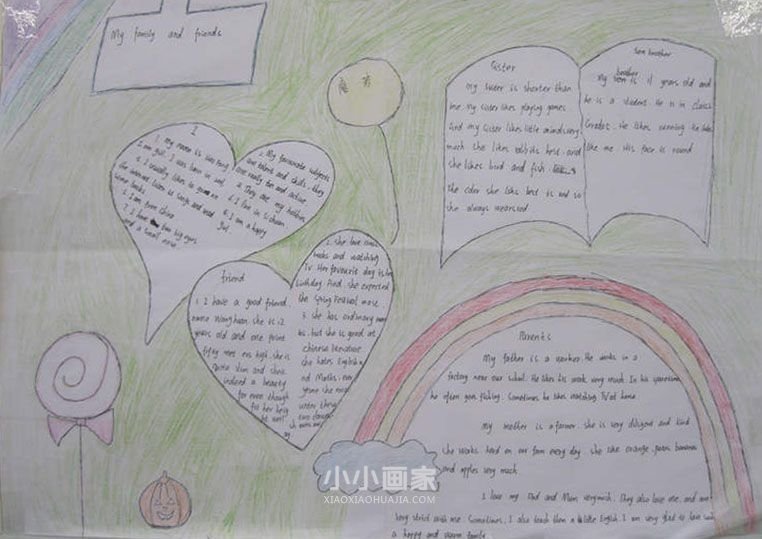 My family and friends
I
1. my name is
I am girl. I was born in
4. I usually likes to
the internet, listen to songs and read
some books.
6. I am from China
7. I have two big eyes
and a small nose.
2. My favourite subjects
are talent and skills. they
are really fun and active.
3. They are my hobbies.
4. I live in Sichuan
6. I am a happy
girl.
friend
1. I have a good friend.
name Wang huan. she is 12
years old and one point
fifty meters high. she is
Quite slim and she's
indeed a beauty
for even though
2. She love comic
books and watching
TV. Her favourite day is her
birthday. And she expected
the Spring Festival most.
3. she has ordinary
but she is good at
chinese literature.
she hates English a
nd Maths.
Sister
My sister is shorter than
me. My sister likes playing games.
And my sister likes little animals very
much. She likes rabbits best. and
she likes bird and fish.
The color she likes best is red so
she always wears red.
brother
brother
My is 11 years old and
he is a student. He is in class
Grade6. He likes running. He looks
like me. His face is round
Parents
My father is a worker. He works in a
factory near our school. He likes his work very much. In his sparetime,
he often goes fishing. Sometimes he likes watching TV at home.
My mother is a farmer. she is very diligent and kind
she works hard on our farm every day. she like orange, pears, bananas
and apples very much.
I love my Dad and Mum very much. They also love me, and are
very strict with me. Sometimes, I also teach them a little English. I am very glad to have such
a happy and warm family.
小小画家
XIAOXIAOHUAJIA.COM